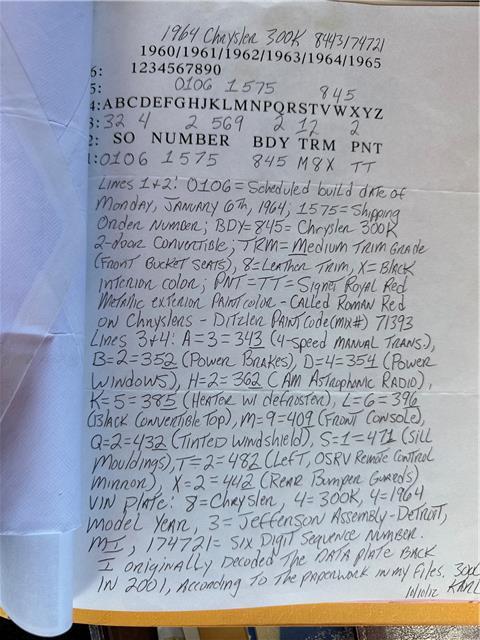 1964 Chrysler 300K 8443174721
1960/1961/1962/1963/1964/1965
6: 1234567890
5: 0106 1575 845
4: ABCDEFGHJKLMNPQRSTVWXYZ
3: 32 4 2 569 2 12 2
2: SO NUMBER BDY TRM PNT
1: 0106 1575 845 M8X TT
Lines 1+2: 0106 = Scheduled build date of
Monday, January 6th, 1964; 1575 = Shipping
Order Number; BDY = 845 = Chrysler 300K
2-door Convertible; TRM = Medium Trim Grade
(Front Bucket Seats), 8 = Leather Trim, X = Black
Interior color; PNT = TT = Signet Royal Red
Metallic exterior Paint color - called Roman Red
on Chryslers - Ditzler Paint Code (mix#) 71393
Lines 3+4: A = 3 = 343 (4-speed manual trans.),
B = 2 = 352 (Power Brakes), D = 4 = 354 (Power
Windows), H = 2 = 362 (AM Astrophonic Radio),
K = 5 = 385 (Heater w/ defroster), L = 6 = 396
(Black Convertible Top), M = 9 = 409 (Front Console),
Q = 2 = 432 (Tinted Windshield), S = 1 = 471 (Sill
Mouldings), T = 2 = 482 (Left, OSRV Remote Control
Mirror), X = 2 = 442 (Rear Bumper Guards)
VIN Plate: 8 = Chrysler, 4 = 300K, 4 = 1964
Model Year, 3 = Jefferson Assembly - Detroit,
MI, 174721 = Six Digit Sequence Number.
I originally decoded the data plate back
in 2001, according to the paperwork in my files. 300
1/10/12 KARL